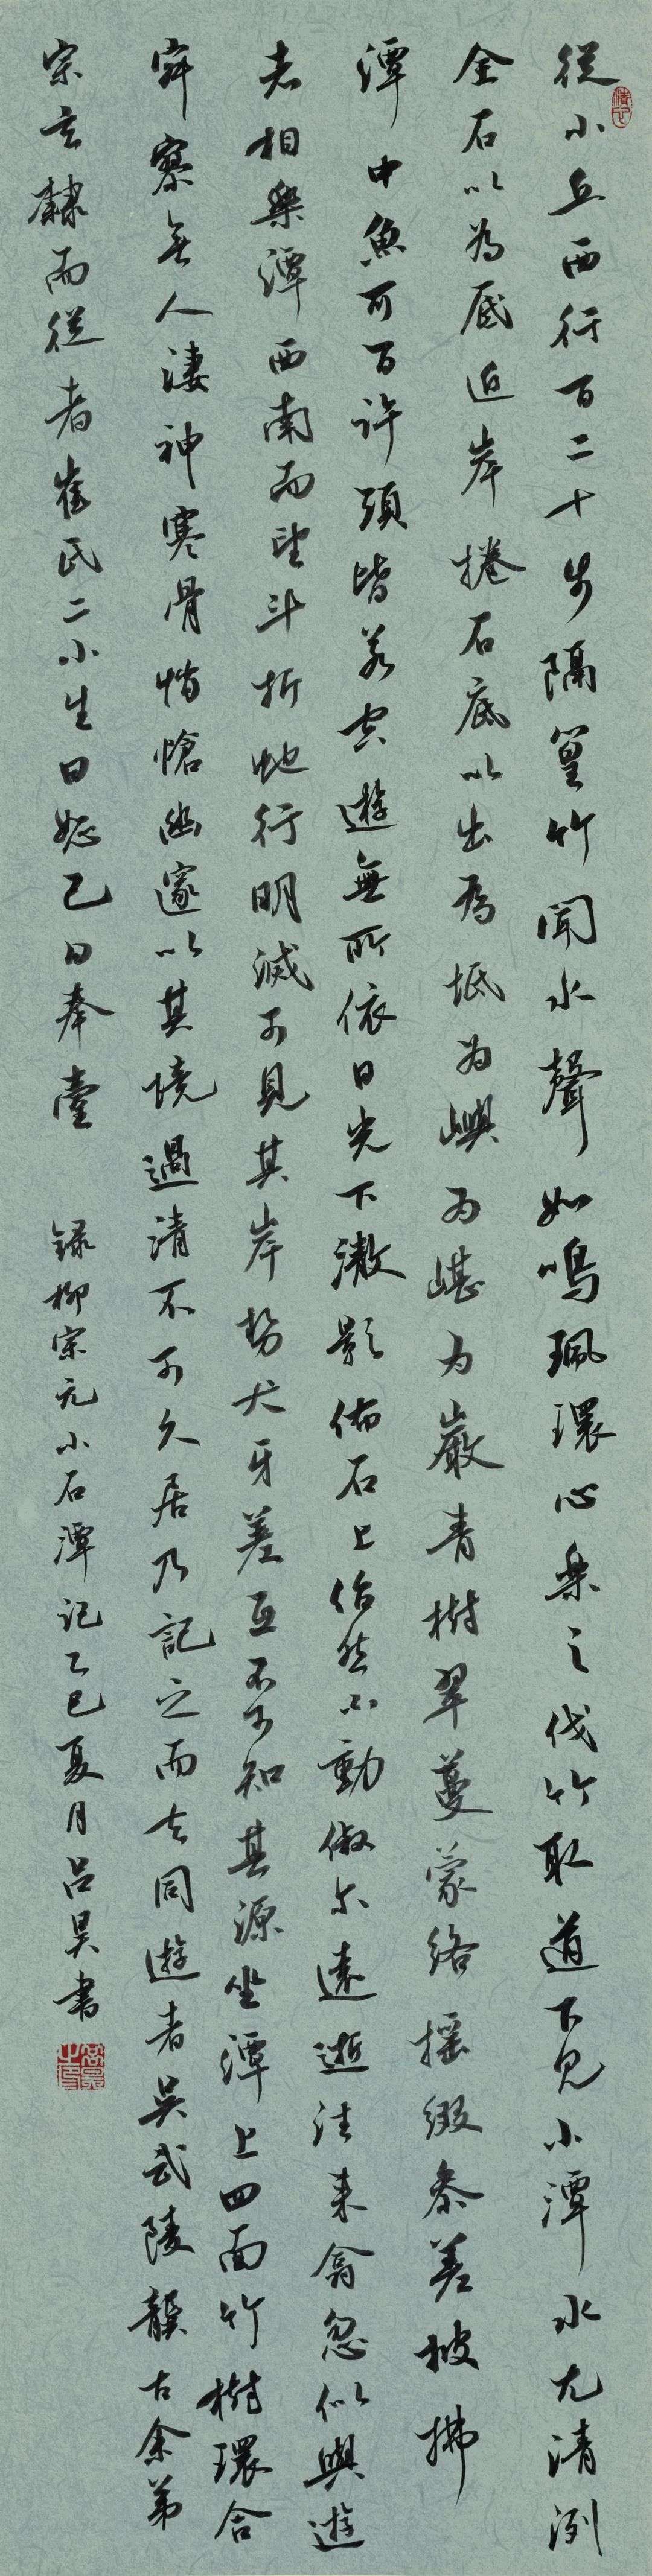 從小丘西行百二十步隔篁竹聞水聲如鳴珮環心樂之伐竹取道下見小潭水尤清洌
全石以為底近岸捲石底以出為坻為嶼為嵁為巖青樹翠蔓蒙絡搖綴參差披拂
潭中魚可百許頭皆若空遊無所依日光下澈影佈石上佁然不動俶尔遠逝往来翕忽似與遊
者相樂潭西南而望斗折蛇行明滅可見其岸勢犬牙差互不可知其源坐潭上四面竹樹環合
寂寥無人淒神寒骨悄愴幽邃以其境過清不可久居乃記之而去同遊者吳武陵龔古余弟
宗玄隸而從者崔氏二小生曰恕己曰奉壹 録柳宗元小石潭记乙巳夏月吕昊書